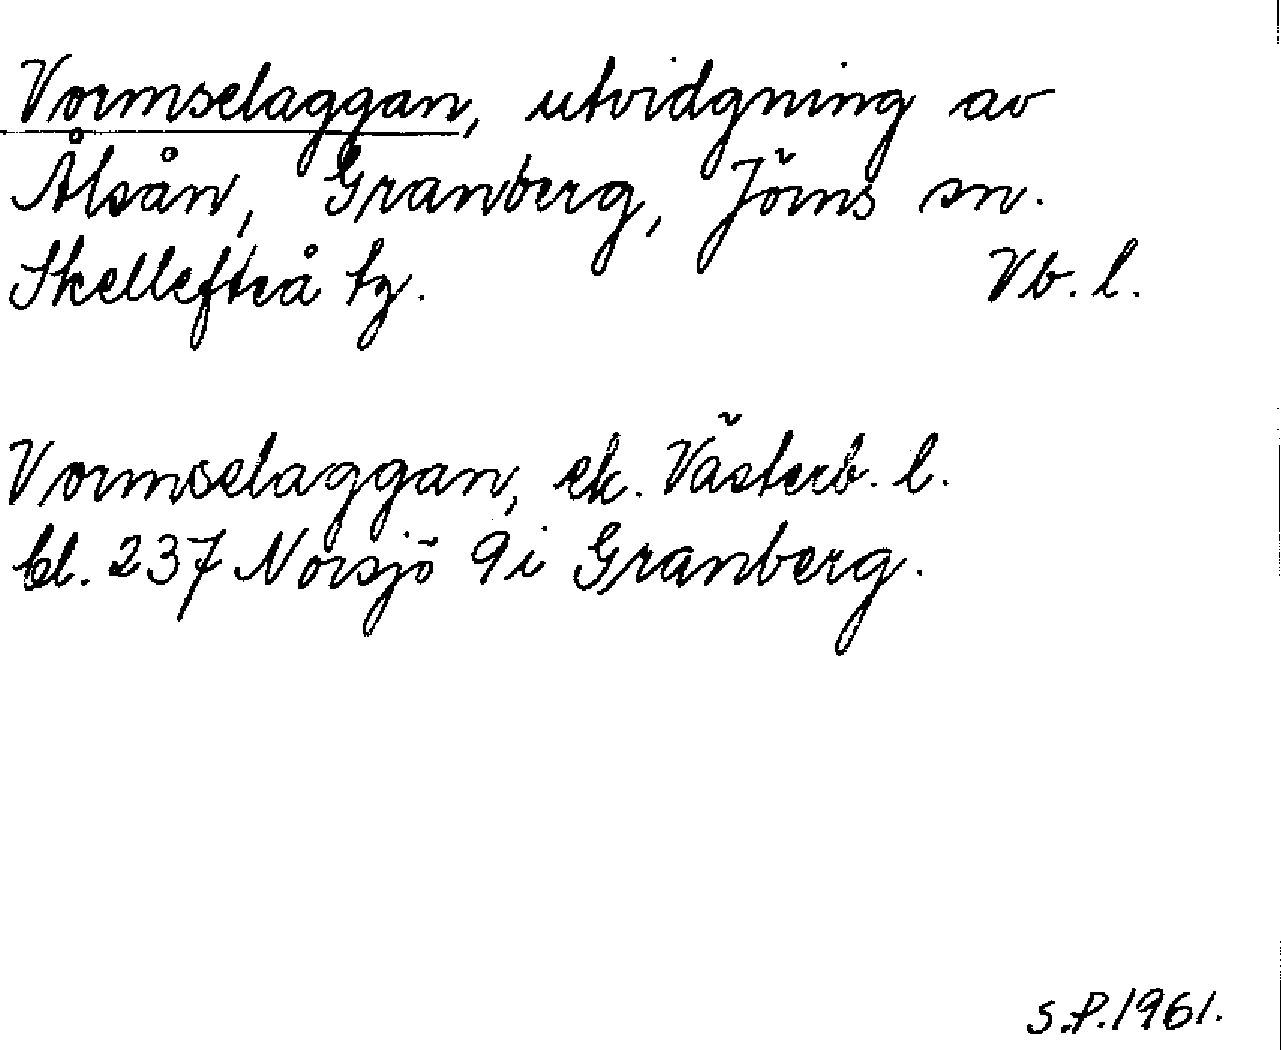 Vormselaggan, utvidgning av
Ålsån, Granberg, Jörns sn.
Skellefteå tg. Vb. l.
Vormselaggan, ek. Västerb. l.
bl. 237 Norsjö 9i Granberg.
S.P. 1961.